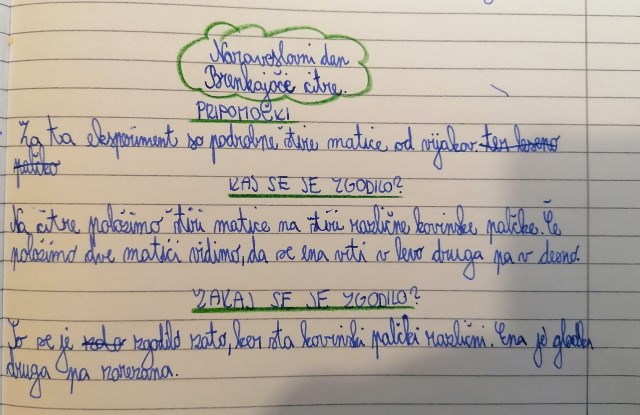 Naravoslovni dan
Brenkajoče citre.
PRIPOMOČKI
Za ta eksperiment so podrobne štire matice od vijakov ter leseno
palčko
KAJ SE JE ZGODILO?
Na citre položimo štiri matice na štiri različne kovinske palčke. Če
položimo dve matici vidimo, da se ena vrti v levo druga pa v desno.
ZAKAJ SE JE ZGODILO?
To se je zgodilo zato, ker sta kovinski palčki različni. Ena je gladka
druga pa narezana.